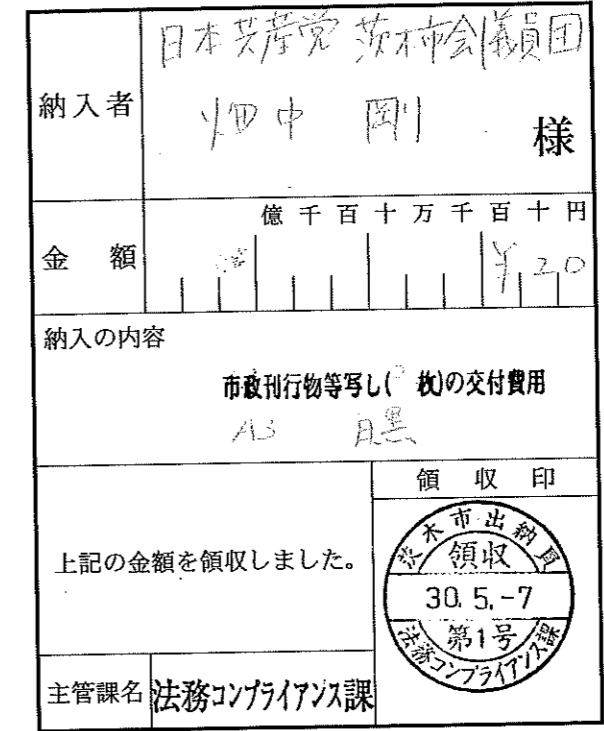 日本共産党 茨木市会議員団
納入者
畑中 剛
様
億千百十万千百十円
金 額
¥20
納入の内容
市政刊行物等写し( 枚)の交付費用
A3 白黒
領 収 印
上記の金額を領収しました。
茨木市出納員
領収
30.5.-7
第1号
法務コンプライアンス課
主管課名
法務コンプライアンス課